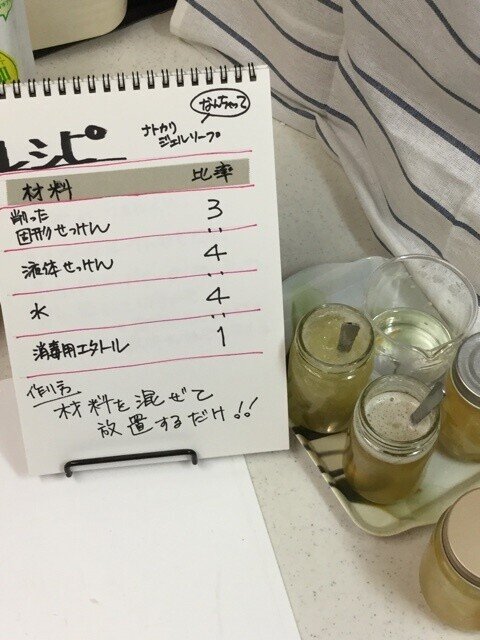 なんちゃって
ナトカリ
ジェルソープ
レシピ
材料 比率
削った
固形せっけん 3
:
液体せっけん 4
:
水 4
:
消毒用エタノール 1
作り方
材料を混ぜて
放置するだけ!!